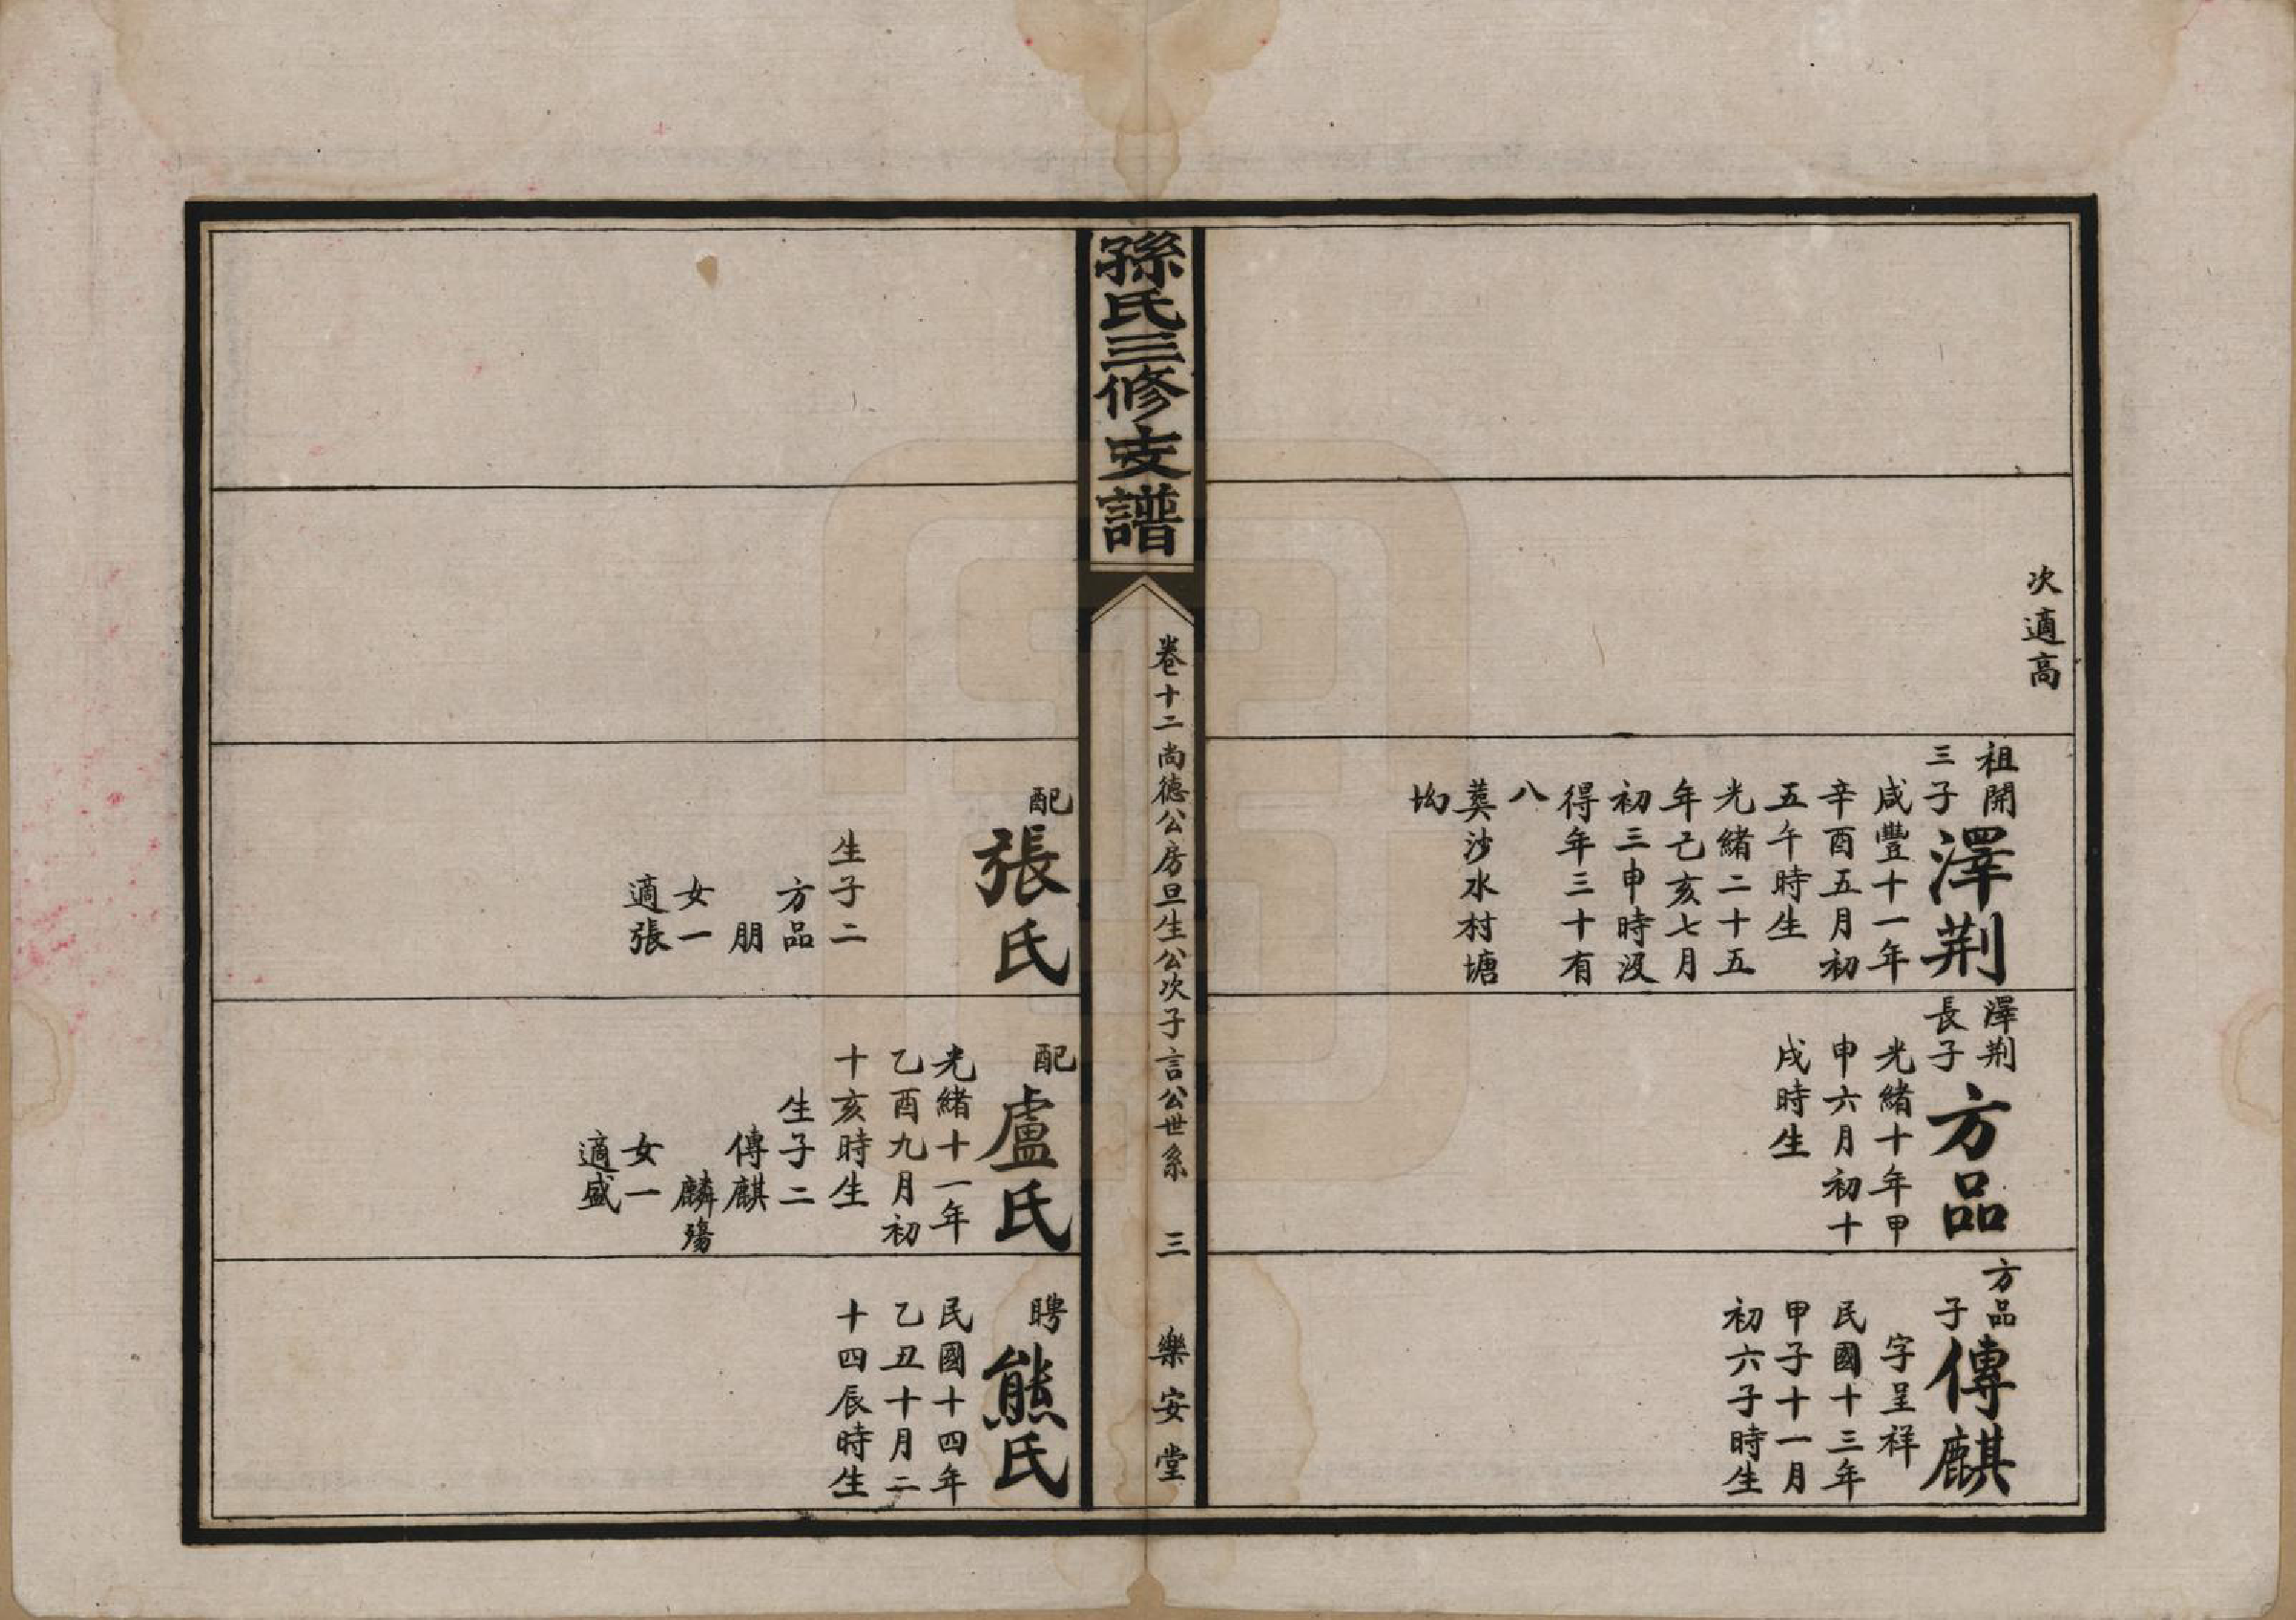 次適高
祖開
三子
澤荆
咸豐十一年
辛酉五月初
五午時生
光緒二十五
年己亥七月
初三申時没
得年三十有
八
葬沙水村塘
坳
澤荆
長子
方品
光緒十年甲
申六月初十
戌時生
方品
子
傳麒
字呈祥
民國十三年
甲子十一月
初六子時生
孫氏三修支譜
卷十二尚德公房旦生公次子言公世系
三
樂安堂
配
張氏
生子二
方品
朋
女一
適張
配
盧氏
光緒十一年
乙酉九月初
十亥時生
生子二
傳麒
麟殤
女一
適盛
聘
熊氏
民國十四年
乙丑十月二
十四辰時生